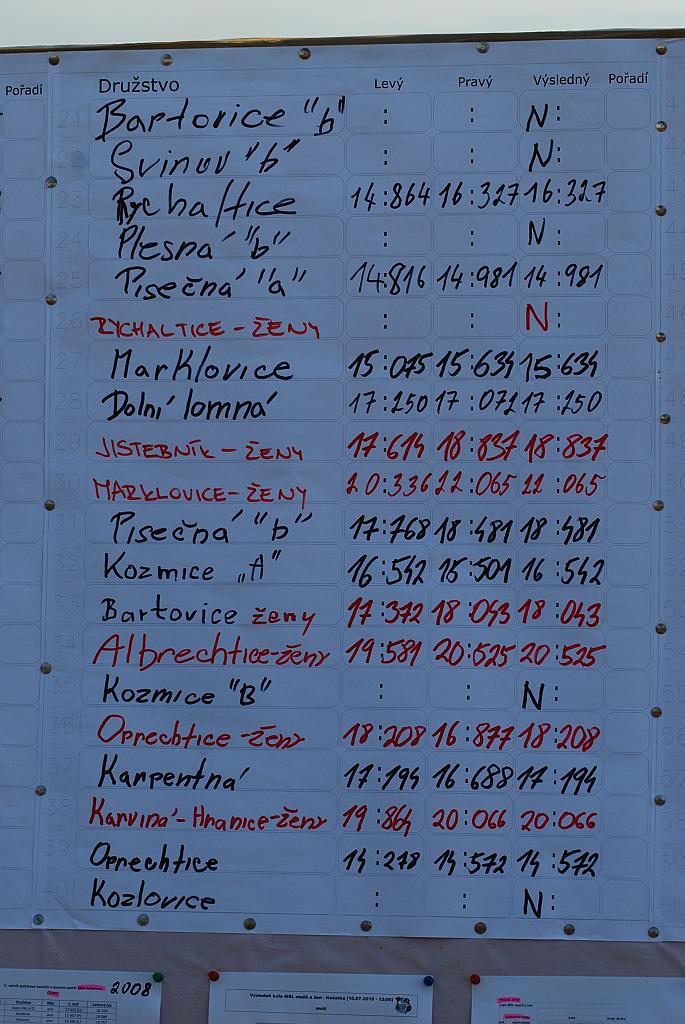 Pořadí Družstvo Levý Pravý Výsledný Pořadí
21 Bartovice "b" : : N:
22 Svinov "b" : : N:
23 Rychaltice 14:864 16:327 16:327
24 Plesná "b" : : N:
25 Písečná "a" 14:816 14:981 14:981
26 RYCHALTICE - ŽENY : : N:
27 Marklovice 15:075 15:634 15:634
28 Dolní lomná 17:250 17:072 17:250
29 JISTEBNÍK - ŽENY 17:614 18:837 18:837
30 MARKLOVICE - ŽENY 20:336 22:065 22:065
31 Písečná "b" 17:768 18:481 18:481
32 Kozmice „A" 16:542 15:501 16:542
33 Bartovice ženy 17:372 18:043 18:043
34 Albrechtice-ženy 19:581 20:525 20:525
35 Kozmice "B" : : N:
36 Oprechtice -ženy 18:208 16:877 18:208
37 Karpentná 17:194 16:688 17:194
38 Karviná-Hranice-ženy 19:864 20:066 20:066
39 Oprechtice 14:278 14:572 14:572
40 Kozlovice : : N:
2008
Výsledek kola MSL mužů a žen - Košatka [10.07.2010 - 13:00]
muži